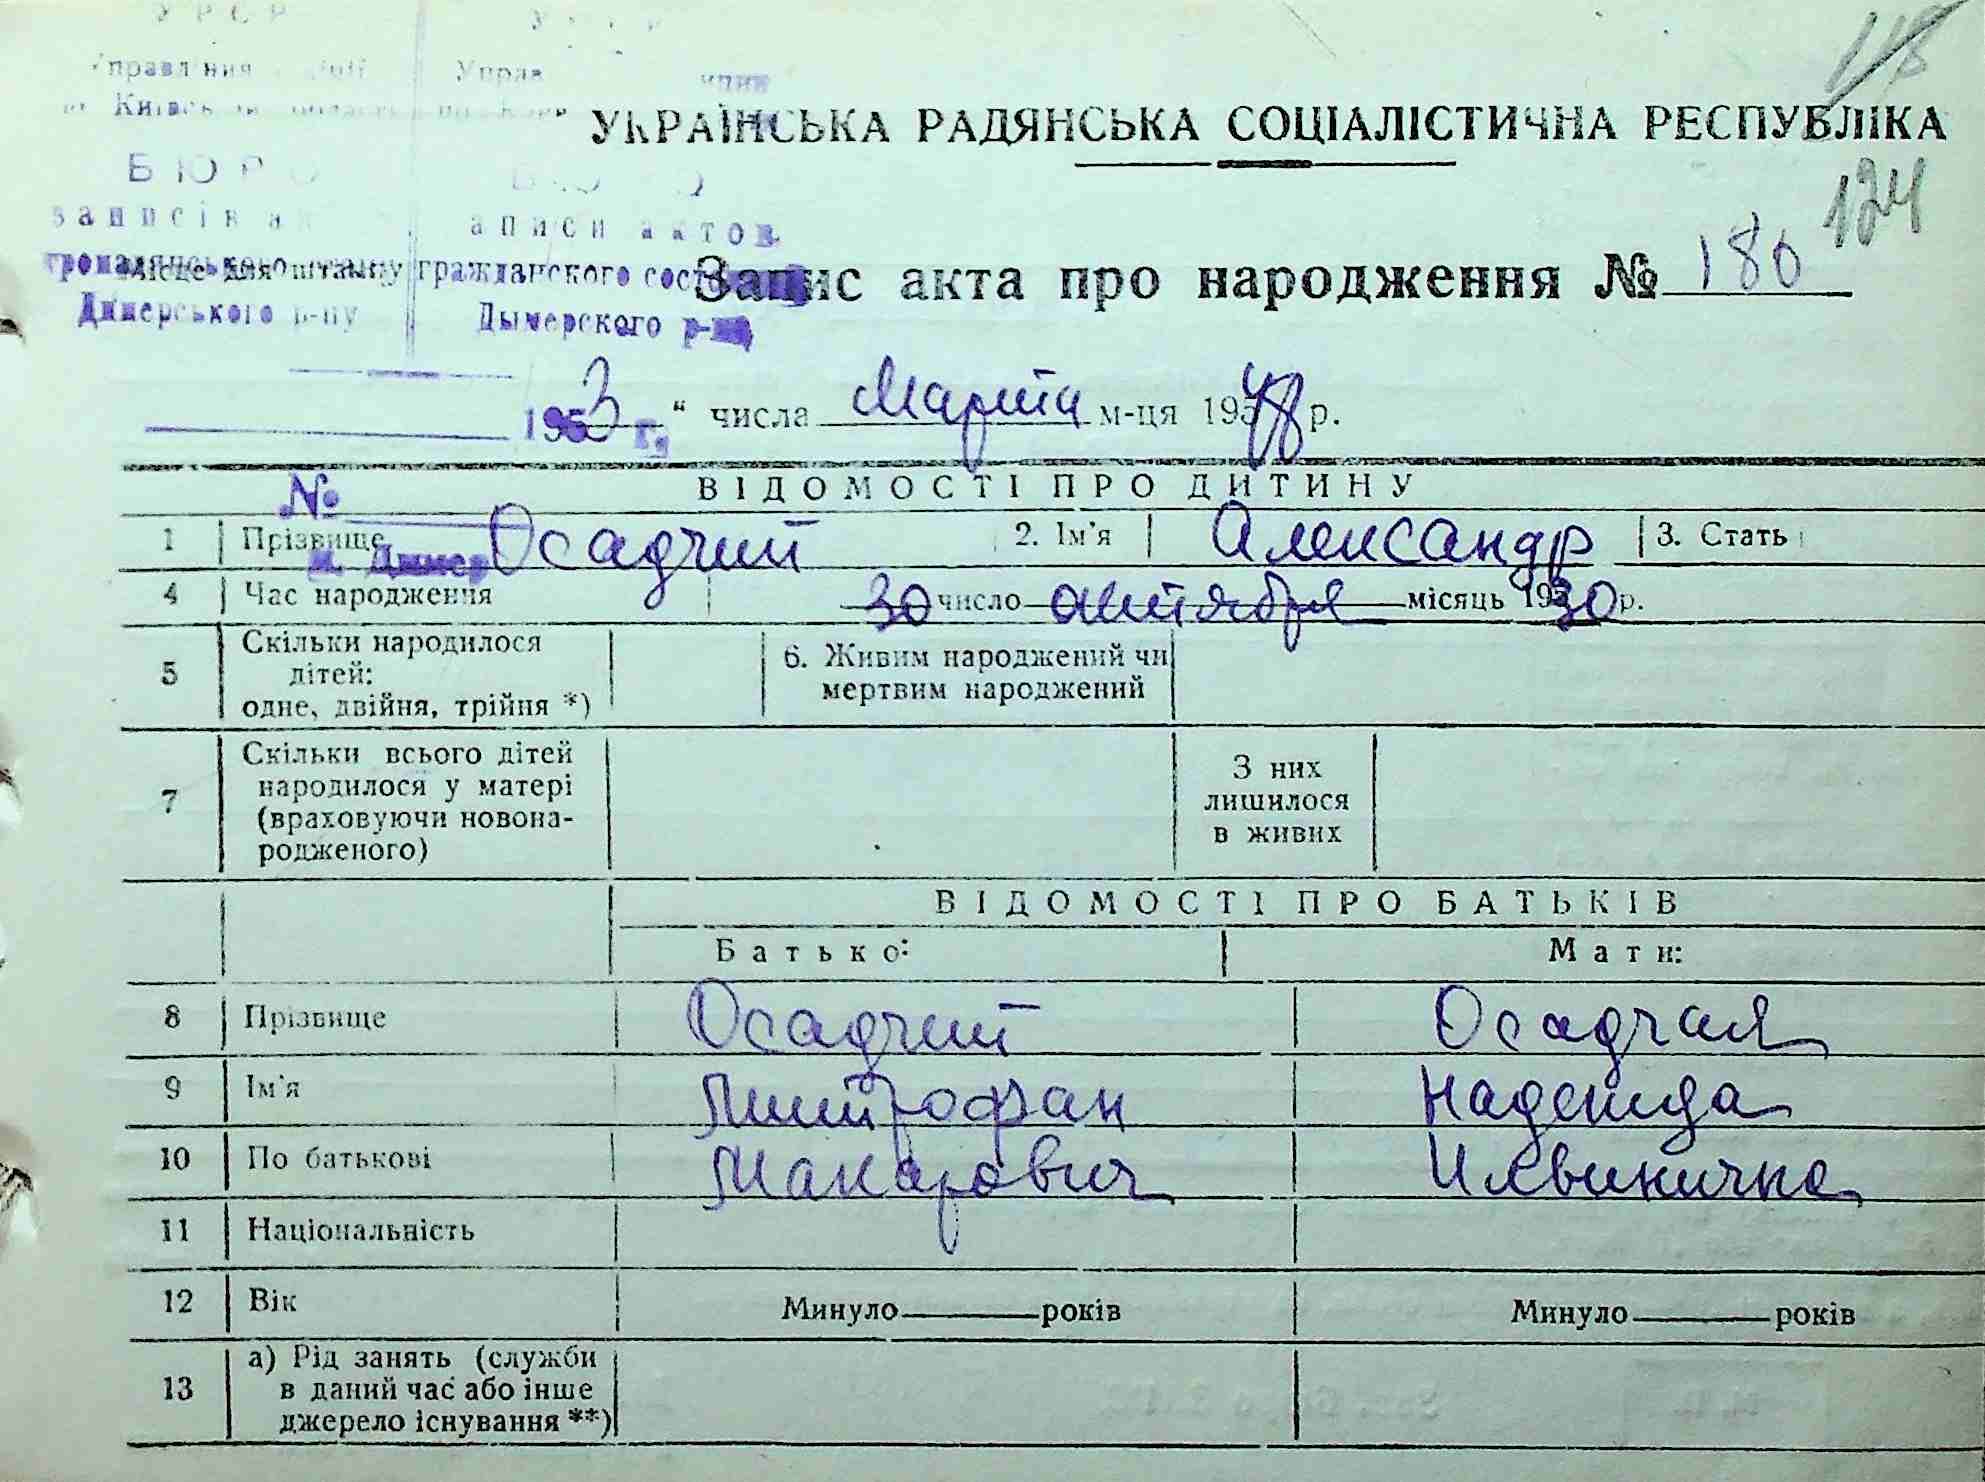 УРСР
118
Управління
Київс
УКРАЇНСЬКА РАДЯНСЬКА СОЦІАЛІСТИЧНА РЕСПУБЛІКА
БЮРО
124
записів
аписи актов
громадянського
Місце для штампу
гражданского
Запис акта про народження № 180
Димерського р-ну
Дымерского р-на
195 г.
3 “ числа Марта м-ця 1948 р.
№
ВІДОМОСТІ ПРО ДИТИНУ
1 Прізвище Осадчий 2. Ім'я Александр 3. Стать
м. Димер
4 Час народження 30 число октября місяць 1930 р.
5 Скільки народилося дітей: одне, двійня, трійня *) 6. Живим народжений чи мертвим народжений
7 Скільки всього дітей народилося у матері (враховуючи новонародженого) З них лишилося в живих
ВІДОМОСТІ ПРО БАТЬКІВ
Батько: Мати:
8 Прізвище Осадчий Осадчая
9 Ім'я Митрофан Надежда
10 По батькові Макарович
11 Національність
12 Вік Минуло років Минуло років
13 а) Рід занять (служби в даний час або інше джерело існування **)